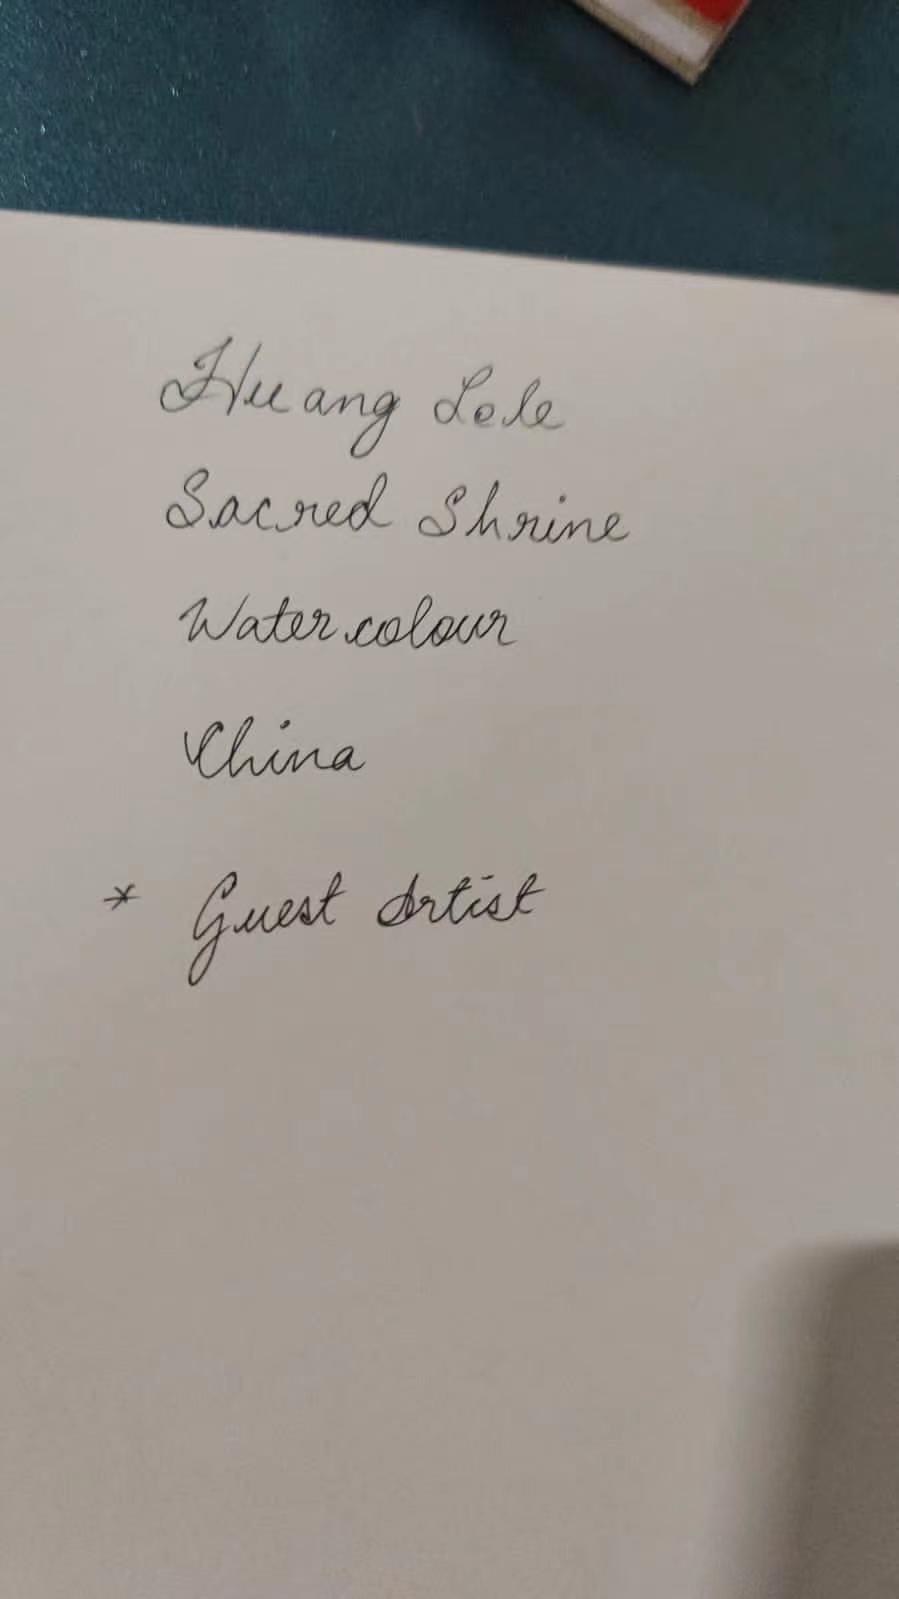 Huang Lele
Sacred Shrine
Watercolour
China
* Guest Artist